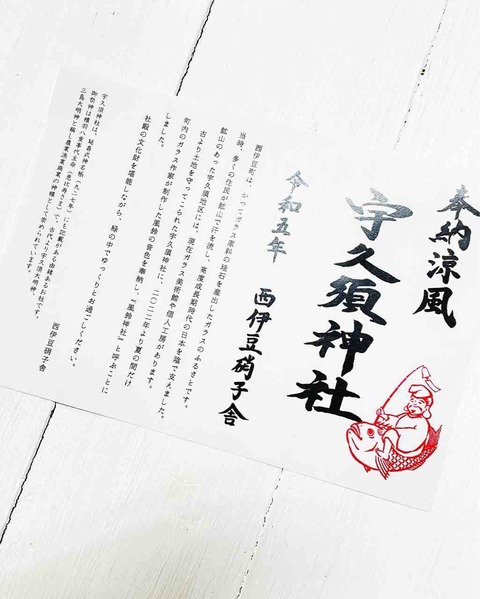 奉納涼風
宇久須神社
令和五年
西伊豆硝子舎
西伊豆町は、かつてガラス原料の珪石を産出したガラスのふるさとです。
当時、多くの住民が鉱山で汗を流し、高度成長期時代の日本を陰で支えました。
鉱山のあった宇久須地区には、現在ガラス美術館や個人工房があります。
古より土地を守ってこられた宇久須神社に、二〇二二年より夏の間だけ
町内のガラス作家が制作した風鈴の音色を奉納し、『風鈴神社』と呼ぶことに
しました。
社殿の文化財を堪能しながら、緑の中でゆっくりとお過ごしください。
西伊豆硝子舎
宇久須神社は、延喜式神名帳(九二七年)にも記載がある由緒あるお社です。
御祭神は積羽八重事代主命(恵比寿さま)で、古代より宇久須大明神、
三島大明神と称し農業漁業商業の神様として崇められています。